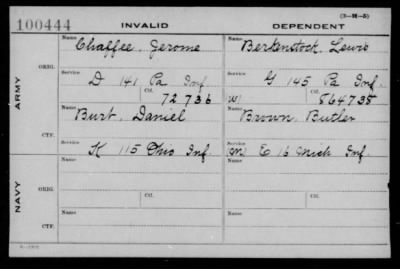 (3-H-5)
100444 INVALID DEPENDENT
Name Chaffee, Jerome Name Berkenstock, Lewis
ORIG.
Service D 141 Pa Inf Service G 145 Pa Inf.
Ctf. 72736 (W) Ctf. 564738
ARMY
Name Burt, Daniel Name Brown, Butler
CTF.
Service K 115 Ohio Inf. Service (M) E 16 Mich Inf.
Name Name
ORIG.
NAVY
Ctf. Ctf.
Name Name
CTF.